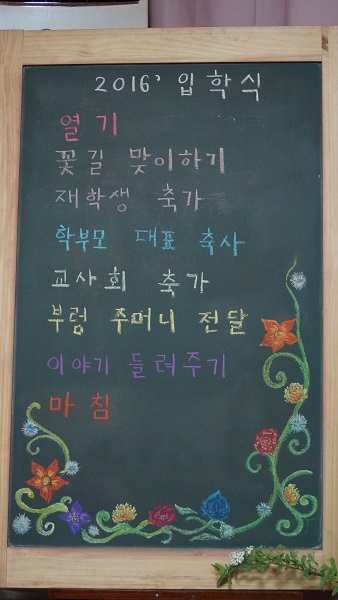 2016' 입학식
열기
꽃길 맞이하기
재학생 축가
학부모 대표 축사
교사회 축가
부렁 주머니 전달
이야기 들려주기
마침